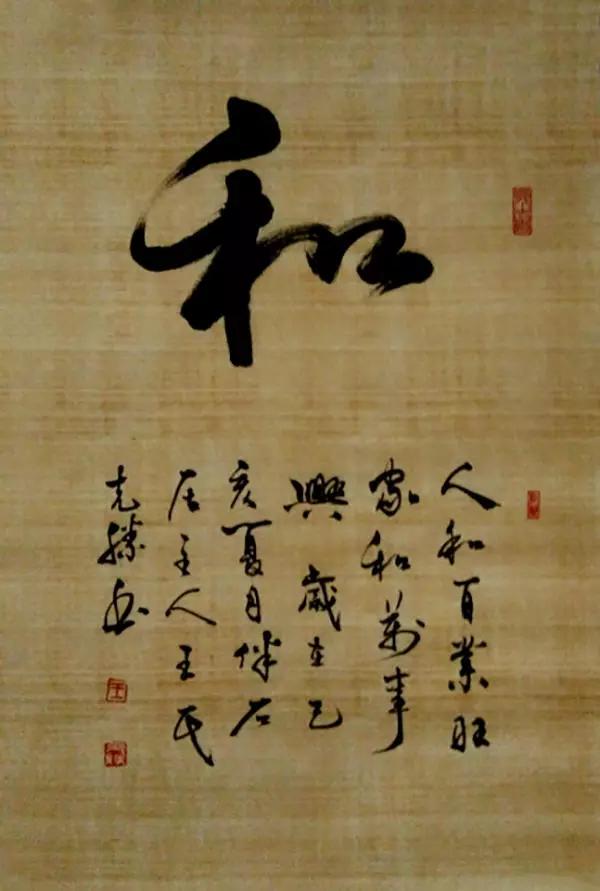 和
人和百業旺
家和萬事
興 歲在己
亥夏月伴石
居主人王氏
克勝書